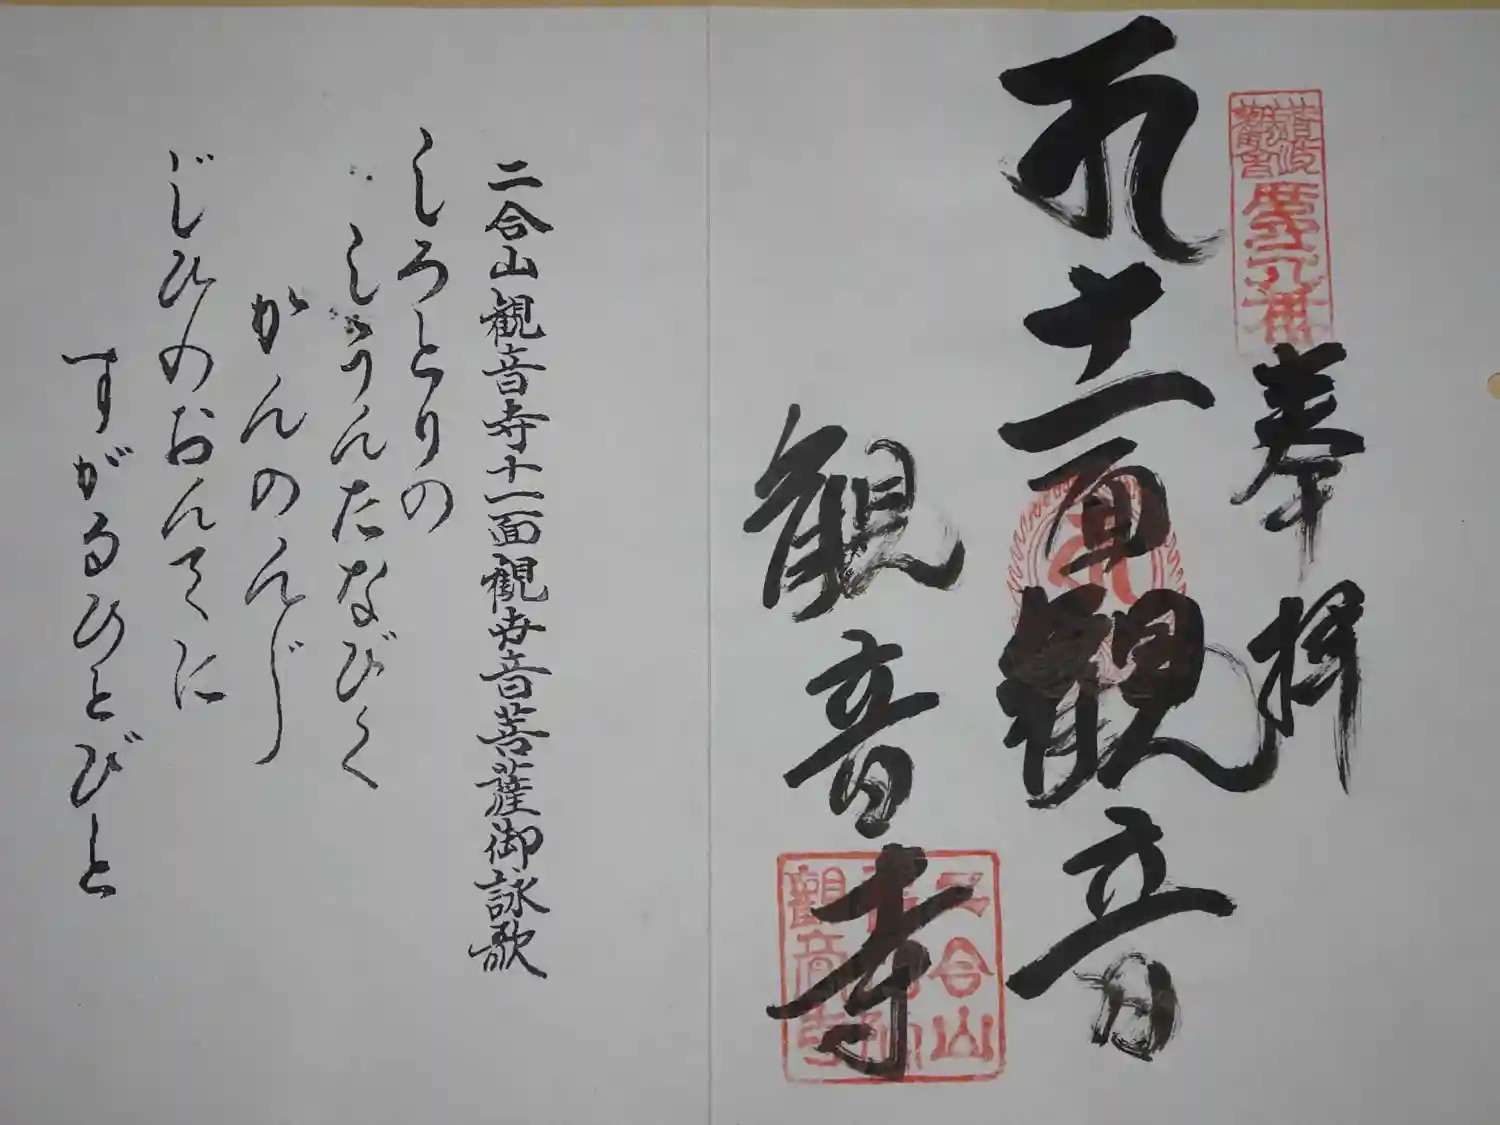 奉拝
十一面観音
観音寺
二合山
觀音寺
二合山観音寺十一面観世音菩薩御詠歌
しろとりの
しうんたなびく
かんのんじ
じひのおんてに
すがるひとびと